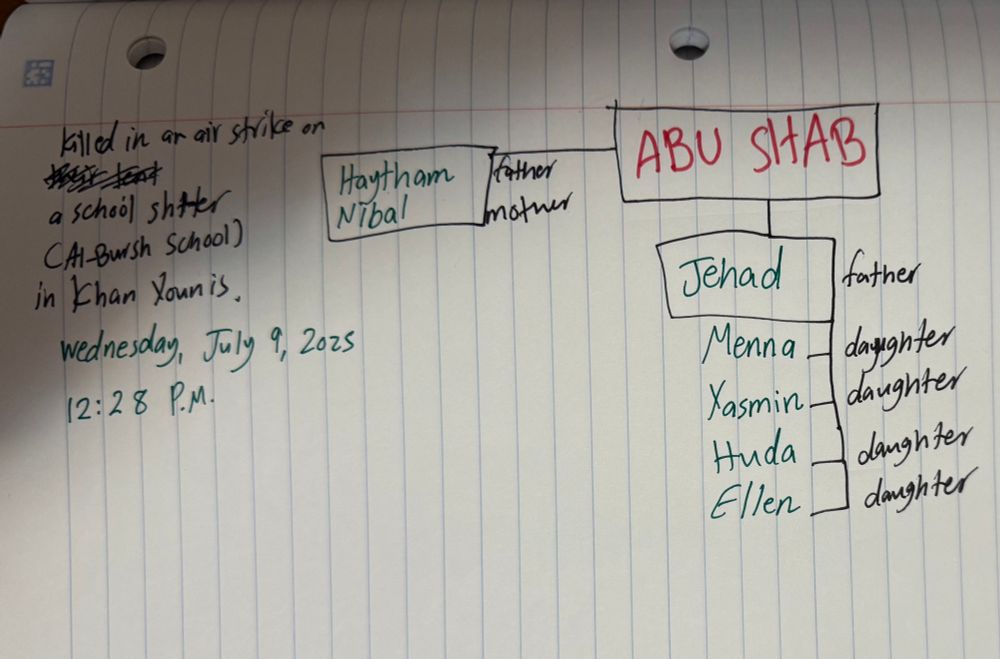 killed in an air strike on
a school
(Al-Bursh School)
in Khan Younis.
Wednesday, July 9, 2025
12:28 P.M.
Haytham father
Nibal mother
ABU SHAB
Jehad father
Menna daughter
Yasmin daughter
Huda daughter
Ellen daughter